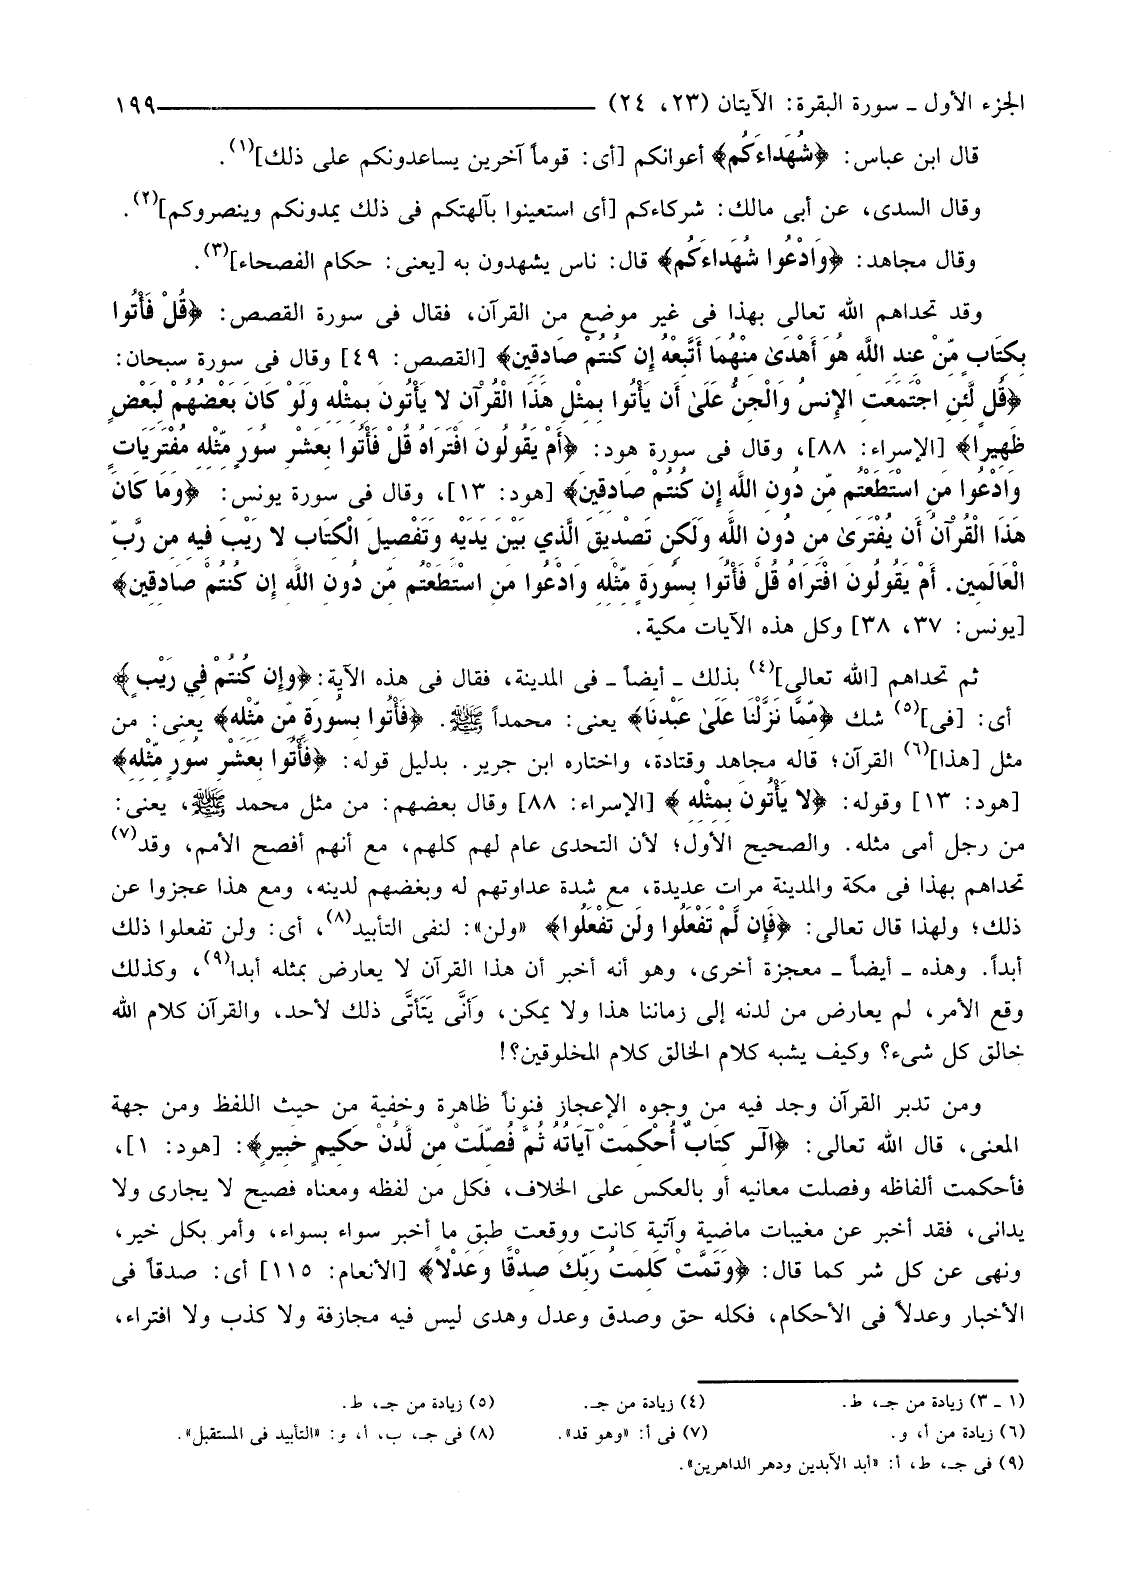 الجزء الأول ـ سورة البقرة: الآيتان (٢٣، ٢٤) ١٩٩
قال ابن عباس: ﴿شُهَدَاءَكُم﴾ أعوانكم [أى: قوماً آخرين يساعدونكم على ذلك](١).
وقال السدى، عن أبى مالك: شركاءكم [أى استعينوا بآلهتكم فى ذلك يمدونكم وينصروكم](٢).
وقال مجاهد: ﴿وَادْعُوا شُهَدَاءَكُم﴾ قال: ناس يشهدون به [يعنى: حكام الفصحاء](٣).
وقد تحداهم الله تعالى بهذا فى غير موضع من القرآن، فقال فى سورة القصص: ﴿قُلْ فَأْتُوا
بِكِتَابٍ مِّنْ عِندِ اللَّهِ هُوَ أَهْدَىٰ مِنْهُمَا أَتَّبِعْهُ إِن كُنتُمْ صَادِقِين﴾ [القصص: ٤٩] وقال فى سورة سبحان:
﴿قُل لَّئِنِ اجْتَمَعَتِ الإِنسُ وَالْجِنُّ عَلَىٰ أَن يَأْتُوا بِمِثْلِ هَذَا الْقُرْآنِ لا يَأْتُونَ بِمِثْلِهِ وَلَوْ كَانَ بَعْضُهُمْ لِبَعْضٍ
ظَهِيرًا﴾ [الإسراء: ٨٨]، وقال فى سورة هود: ﴿أَمْ يَقُولُونَ افْتَرَاهُ قُلْ فَأْتُوا بِعَشْرِ سُوَرٍ مِّثْلِهِ مُفْتَرَيَاتٍ
وَادْعُوا مَنِ اسْتَطَعْتُم مِّن دُونِ اللَّهِ إِن كُنتُمْ صَادِقِينَ﴾ [هود: ١٣]، وقال فى سورة يونس: ﴿وَمَا كَانَ
هَذَا الْقُرْآنُ أَن يُفْتَرَىٰ مِن دُونِ اللَّهِ وَلَكِن تَصْدِيقَ الَّذِي بَيْنَ يَدَيْهِ وَتَفْصِيلَ الْكِتَابِ لا رَيْبَ فِيهِ مِن رَّبِّ
الْعَالَمِين. أَمْ يَقُولُونَ افْتَرَاهُ قُلْ فَأْتُوا بِسُورَةٍ مِّثْلِهِ وَادْعُوا مَنِ اسْتَطَعْتُم مِّن دُونِ اللَّهِ إِن كُنتُمْ صَادِقِين﴾
[يونس: ٣٧، ٣٨] وكل هذه الآيات مكية.
ثم تحداهم [الله تعالى](٤) بذلك ـ أيضاً ـ فى المدينة، فقال فى هذه الآية: ﴿وَإِن كُنتُمْ فِي رَيْبٍ﴾
أى: [فى](٥) شك ﴿مِّمَّا نَزَّلْنَا عَلَىٰ عَبْدِنَا﴾ يعنى: محمداً ﷺ. ﴿فَأْتُوا بِسُورَةٍ مِّن مِّثْلِه﴾ يعنى: من
مثل [هذا](٦) القرآن؛ قاله مجاهد وقتادة، واختاره ابن جرير. بدليل قوله: ﴿فَأْتُوا بِعَشْرِ سُوَرٍ مِّثْلِهِ﴾
[هود: ١٣] وقوله: ﴿لا يَأْتُونَ بِمِثْلِهِ﴾ [الإسراء: ٨٨] وقال بعضهم: من مثل محمد ﷺ، يعنى:
من رجل أمى مثله. والصحيح الأول؛ لأن التحدى عام لهم كلهم، مع أنهم أفصح الأمم، وقد(٧)
تحداهم بهذا فى مكة والمدينة مرات عديدة، مع شدة عداوتهم له وبغضهم لدينه، ومع هذا عجزوا عن
ذلك؛ ولهذا قال تعالى: ﴿فَإِن لَّمْ تَفْعَلُوا وَلَن تَفْعَلُوا﴾ «ولن»: لنفى التأبيد(٨)، أى: ولن تفعلوا ذلك
أبداً. وهذه ـ أيضاً ـ معجزة أخرى، وهو أنه أخبر أن هذا القرآن لا يعارض بمثله أبدا(٩)، وكذلك
وقع الأمر، لم يعارض من لدنه إلى زماننا هذا ولا يمكن، وَأَنَّى يَتَأَتَّى ذلك لأحد، والقرآن كلام الله
خالق كل شىء؟ وكيف يشبه كلام الخالق كلام المخلوقين؟!
ومن تدبر القرآن وجد فيه من وجوه الإعجاز فنوناً ظاهرة وخفية من حيث اللفظ ومن جهة
المعنى، قال الله تعالى: ﴿الَر كِتَابٌ أُحْكِمَتْ آيَاتُهُ ثُمَّ فُصِّلَتْ مِن لَّدُنْ حَكِيمٍ خَبِيرٍ﴾: [هود: ١]،
فأحكمت ألفاظه وفصلت معانيه أو بالعكس على الخلاف، فكل من لفظه ومعناه فصيح لا يجارى ولا
يدانى، فقد أخبر عن مغيبات ماضية وآتية كانت ووقعت طبق ما أخبر سواء بسواء، وأمر بكل خير،
ونهى عن كل شر كما قال: ﴿وَتَمَّتْ كَلِمَتُ رَبِّكَ صِدْقًا وَعَدْلًا﴾ [الأنعام: ١١٥] أى: صدقاً فى
الأخبار وعدلاً فى الأحكام، فكله حق وصدق وعدل وهدى ليس فيه مجازفة ولا كذب ولا افتراء،
(١ ـ ٣) زيادة من جـ، ط. (٤) زيادة من جـ. (٥) زيادة من جـ، ط.
(٦) زيادة من أ، و. (٧) فى أ: «وهو قد». (٨) فى جـ، ب، أ، و: «التأبيد فى المستقبل».
(٩) فى جـ، ط، أ: «أبد الآبدين ودهر الداهرين».